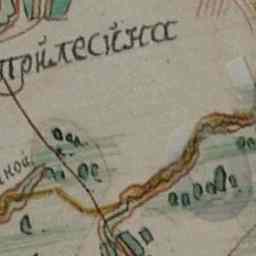 прилесйна
ной
с.